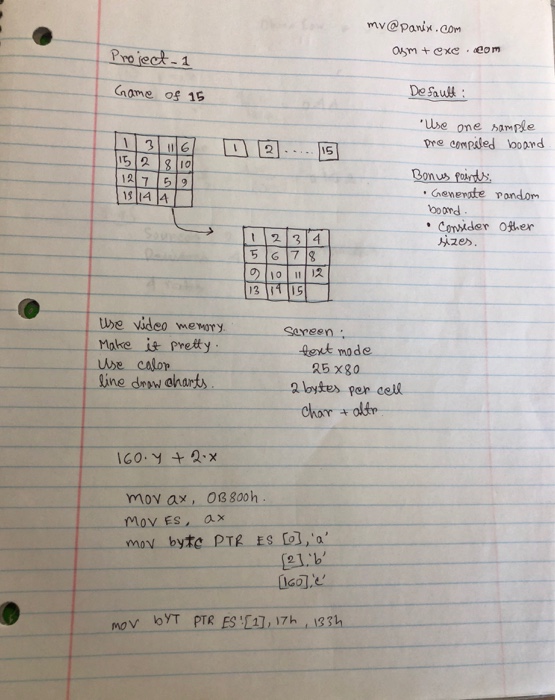 mv@panix.com
asm + exe . com
Project-1
Game of 15
Default:
1 3 11 6
15 2 8 10
12 7 5 9
13 14 4
1 2 ..... 15
• Use one sample
pre compiled board
Bonus points:
• Generate random
board.
• Consider other
sizes.
1 2 3 4
5 6 7 8
9 10 11 12
13 14 15
Use video memory.
Make it pretty.
Use color
line draw charts.
Screen:
text mode
25 x 80
2 bytes per cell
Char + attr
160.y + 2.x
mov ax, 0B800h.
mov ES, ax
mov byte PTR ES [0], 'a'
[2], 'b'
[160], 'c'
mov bYT PTR ES:[1], 17h, 133h